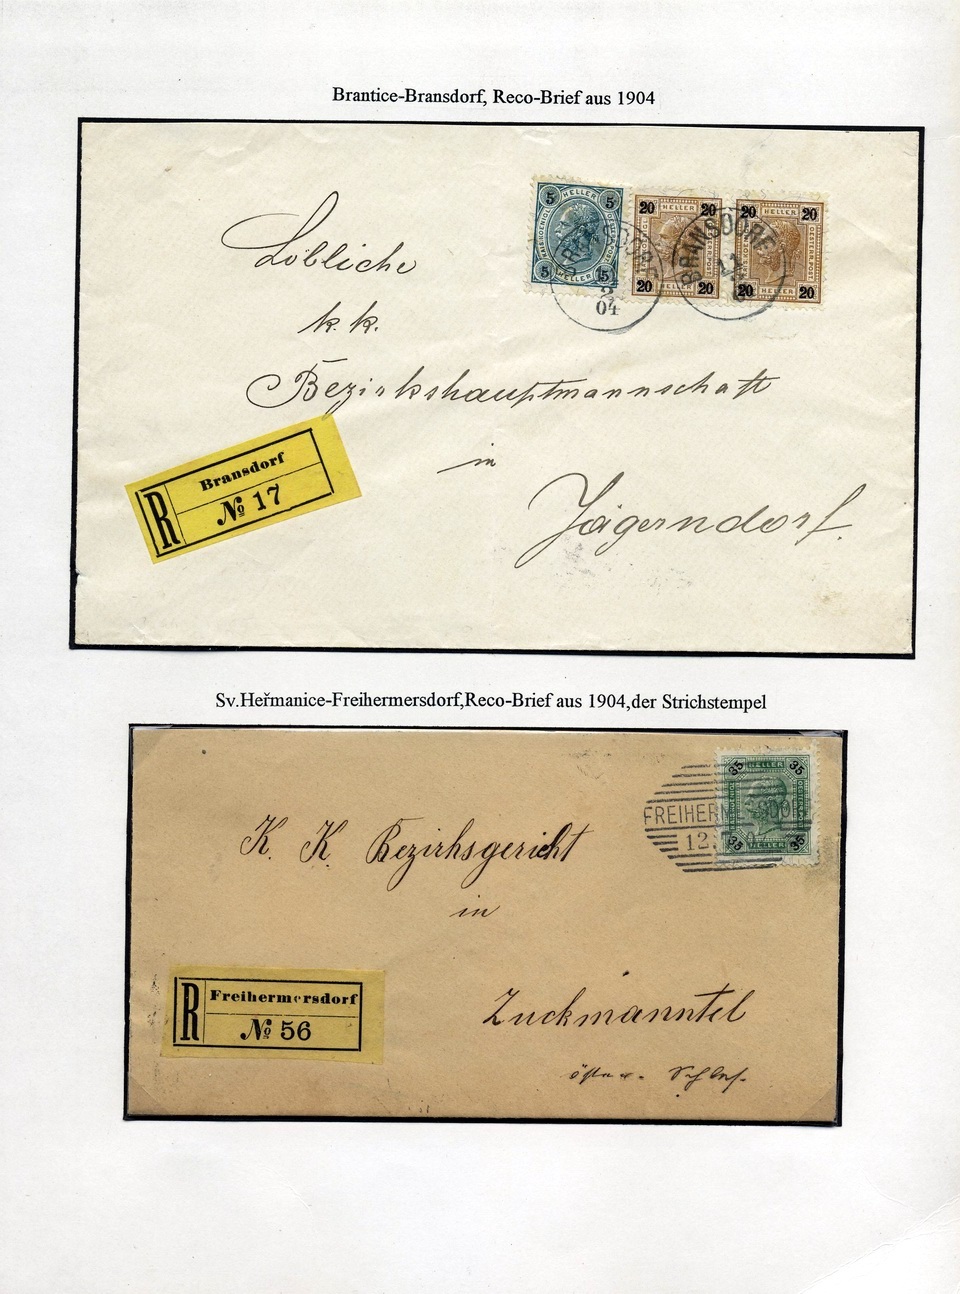 Brantice-Bransdorf, Reco-Brief aus 1904
5 HELLER 5
5 HELLER 5
20 HELLER 20
20 HELLER 20
20 HELLER 20
20 HELLER 20
BRANSDORF
04
BRANSDORF
Löbliche
k. k.
Bezirkshauptmannschaft
in
Jägerndorf.
R
Bransdorf
№ 17
Sv.Heřmanice-Freihermersdorf,Reco-Brief aus 1904,der Strichstempel
35 HELLER 35
35 HELLER 35
K. K. Bezirksgericht
in
Zuckmanntel
R
Freihermersdorf
№ 56